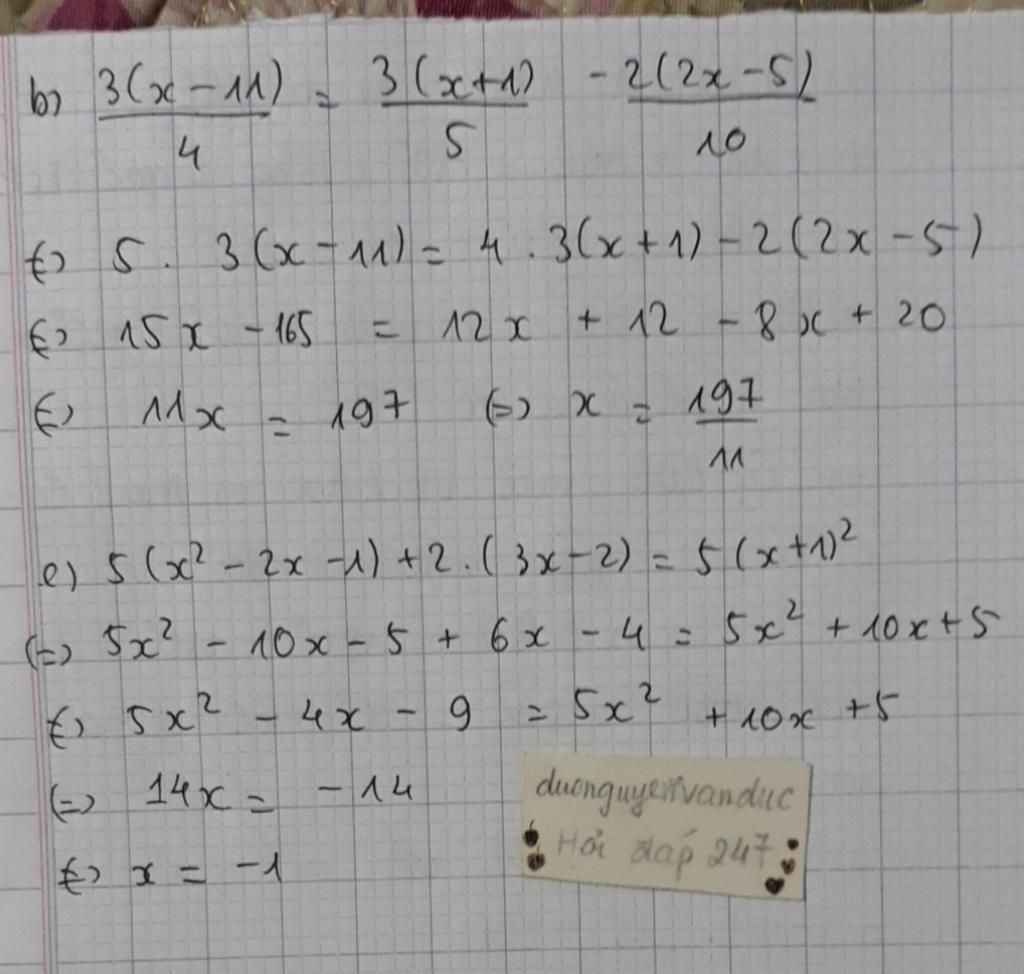 b) 3(x-11)/4 = 3(x+1)/5 - 2(2x-5)/10
(=) 5 . 3(x-11) = 4 . 3(x+1) - 2(2x-5)
(=) 15x - 165 = 12x + 12 - 8x + 20
(=) 11x = 197 (=) x = 197/11
e) 5(x² - 2x - 1) + 2.(3x-2) = 5(x+1)²
(=) 5x² - 10x - 5 + 6x - 4 = 5x² + 10x + 5
(=) 5x² - 4x - 9 = 5x² + 10x + 5
(=) 14x = -14
(=) x = -1
duonguyenvanduc
Hỏi đáp 247